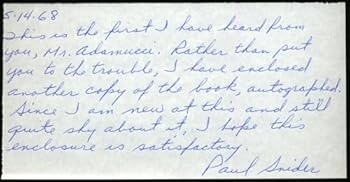 5-14-68
This is the first I have heard from
you, Mr. Adamucci. Rather than put
you to the trouble, I have enclosed
another copy of the book, autographed.
Since I am new at this and still
quite shy about it, I hope this
enclosure is satisfactory.
Paul Snider